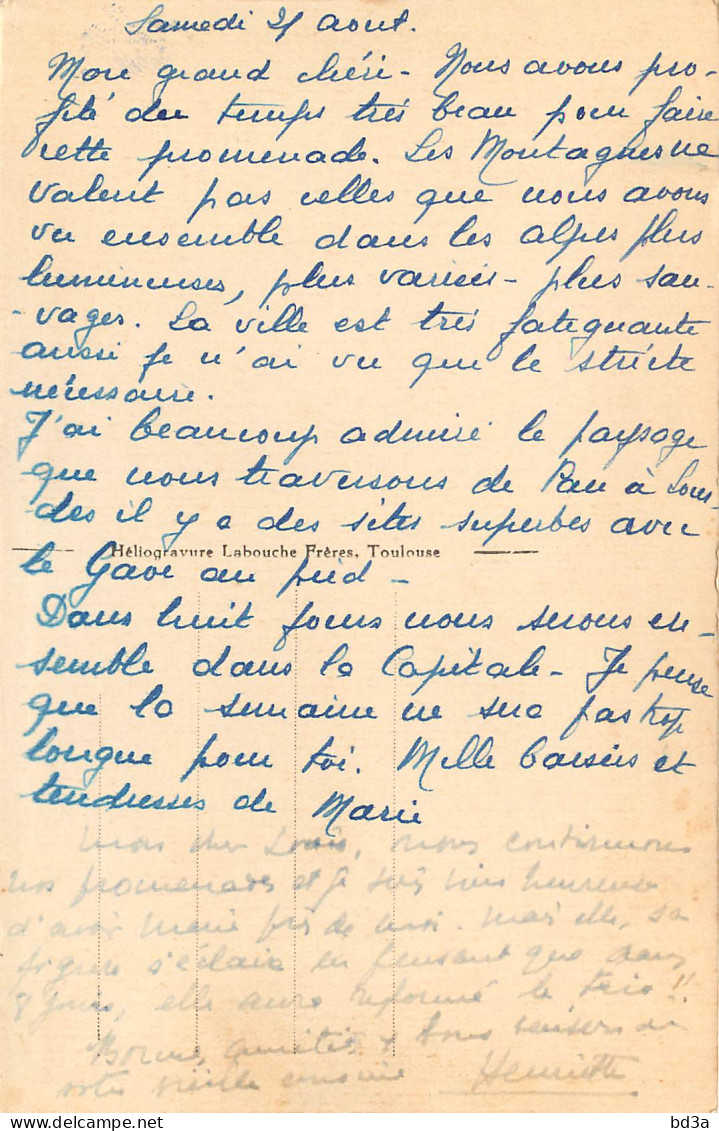 Samedi 21 aout.
Mon grand chéri - Nous avons pro-
fité du temps très beau pour faire
cette promenade. Les Montagnes ne
valent pas celles que nous avons
vu ensemble dans les alpes plus
lumineuses, plus variées - plus sau-
-vages. La ville est très fatiguante
aussi je n'ai vu que le stricte
nécessaire.
J'ai beaucoup admiré le paysage
que nous traversons de Pau à Lour-
des il y a des sites superbes avec
Héliogravure Labouche Frères, Toulouse
le Gave au pied -
Dans huit jours nous serons en-
semble dans la Capitale - Je pense
que la semaine ne sera pas trop
longue pour toi. Mille baisers et
tendresses de Marie
Mon cher Louis, nous continuons
nos promenades et je suis bien heureuse
d'avoir Marie près de moi. Mais elle, sa
figure s'éclaire en pensant que dans
8 jours, elle aura reformé le trio !!
Bonnes amitiés & bons baisers de
votre vieille cousine Henriette
bd3a
delcampe.net